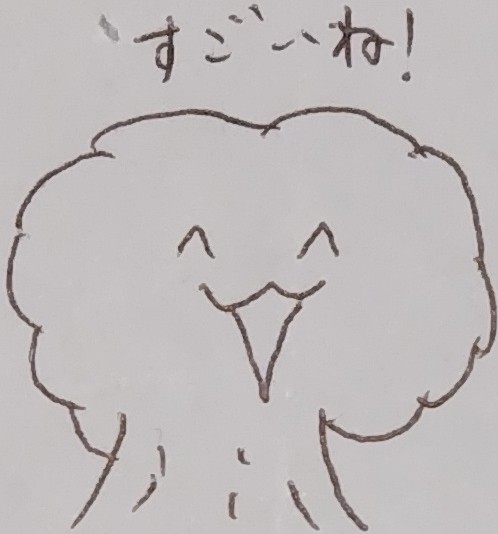 すごいね!